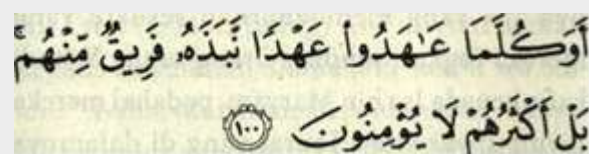 أَوَكُلَّمَا عَٰهَدُوا۟ عَهْدًا نَّبَذَهُۥ فَرِيقٌ مِّنْهُم ۚ
بَلْ أَكْثَرُهُمْ لَا يُؤْمِنُونَ ﴿١٠٠﴾